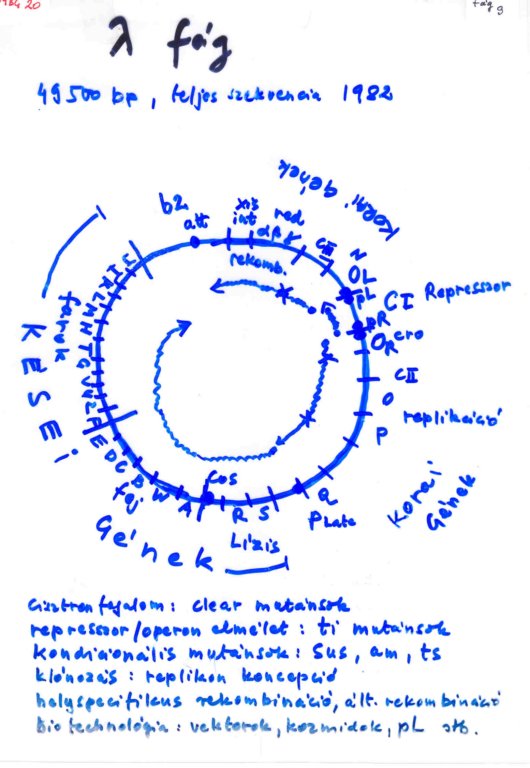 fág 9
λ fág
49500 bp, teljes szekvencia 1982
Korai gének
b2
att
xis
int
red
αβγ
rekomb.
CIII
N
OL
pL
CI Repressor
pR
OR cro
CII
O
replikáció
P
Korai
Gének
Q
P Late
S
R
Lízis
cos
A
W
B
C
D
E
fej
F
Z
U
V
G
T
H
M
L
K
I
J
farok
KÉSEI
Gének
cisztron fogalom: clear mutánsok
represszor/operon elmélet: ti mutánsok
kondicionális mutánsok: sus, am, ts
klónozás: replikon koncepció
helyspecifikus rekombináció, ált. rekombináció
biotechnológia: vektorok, kozmidok, pL stb.